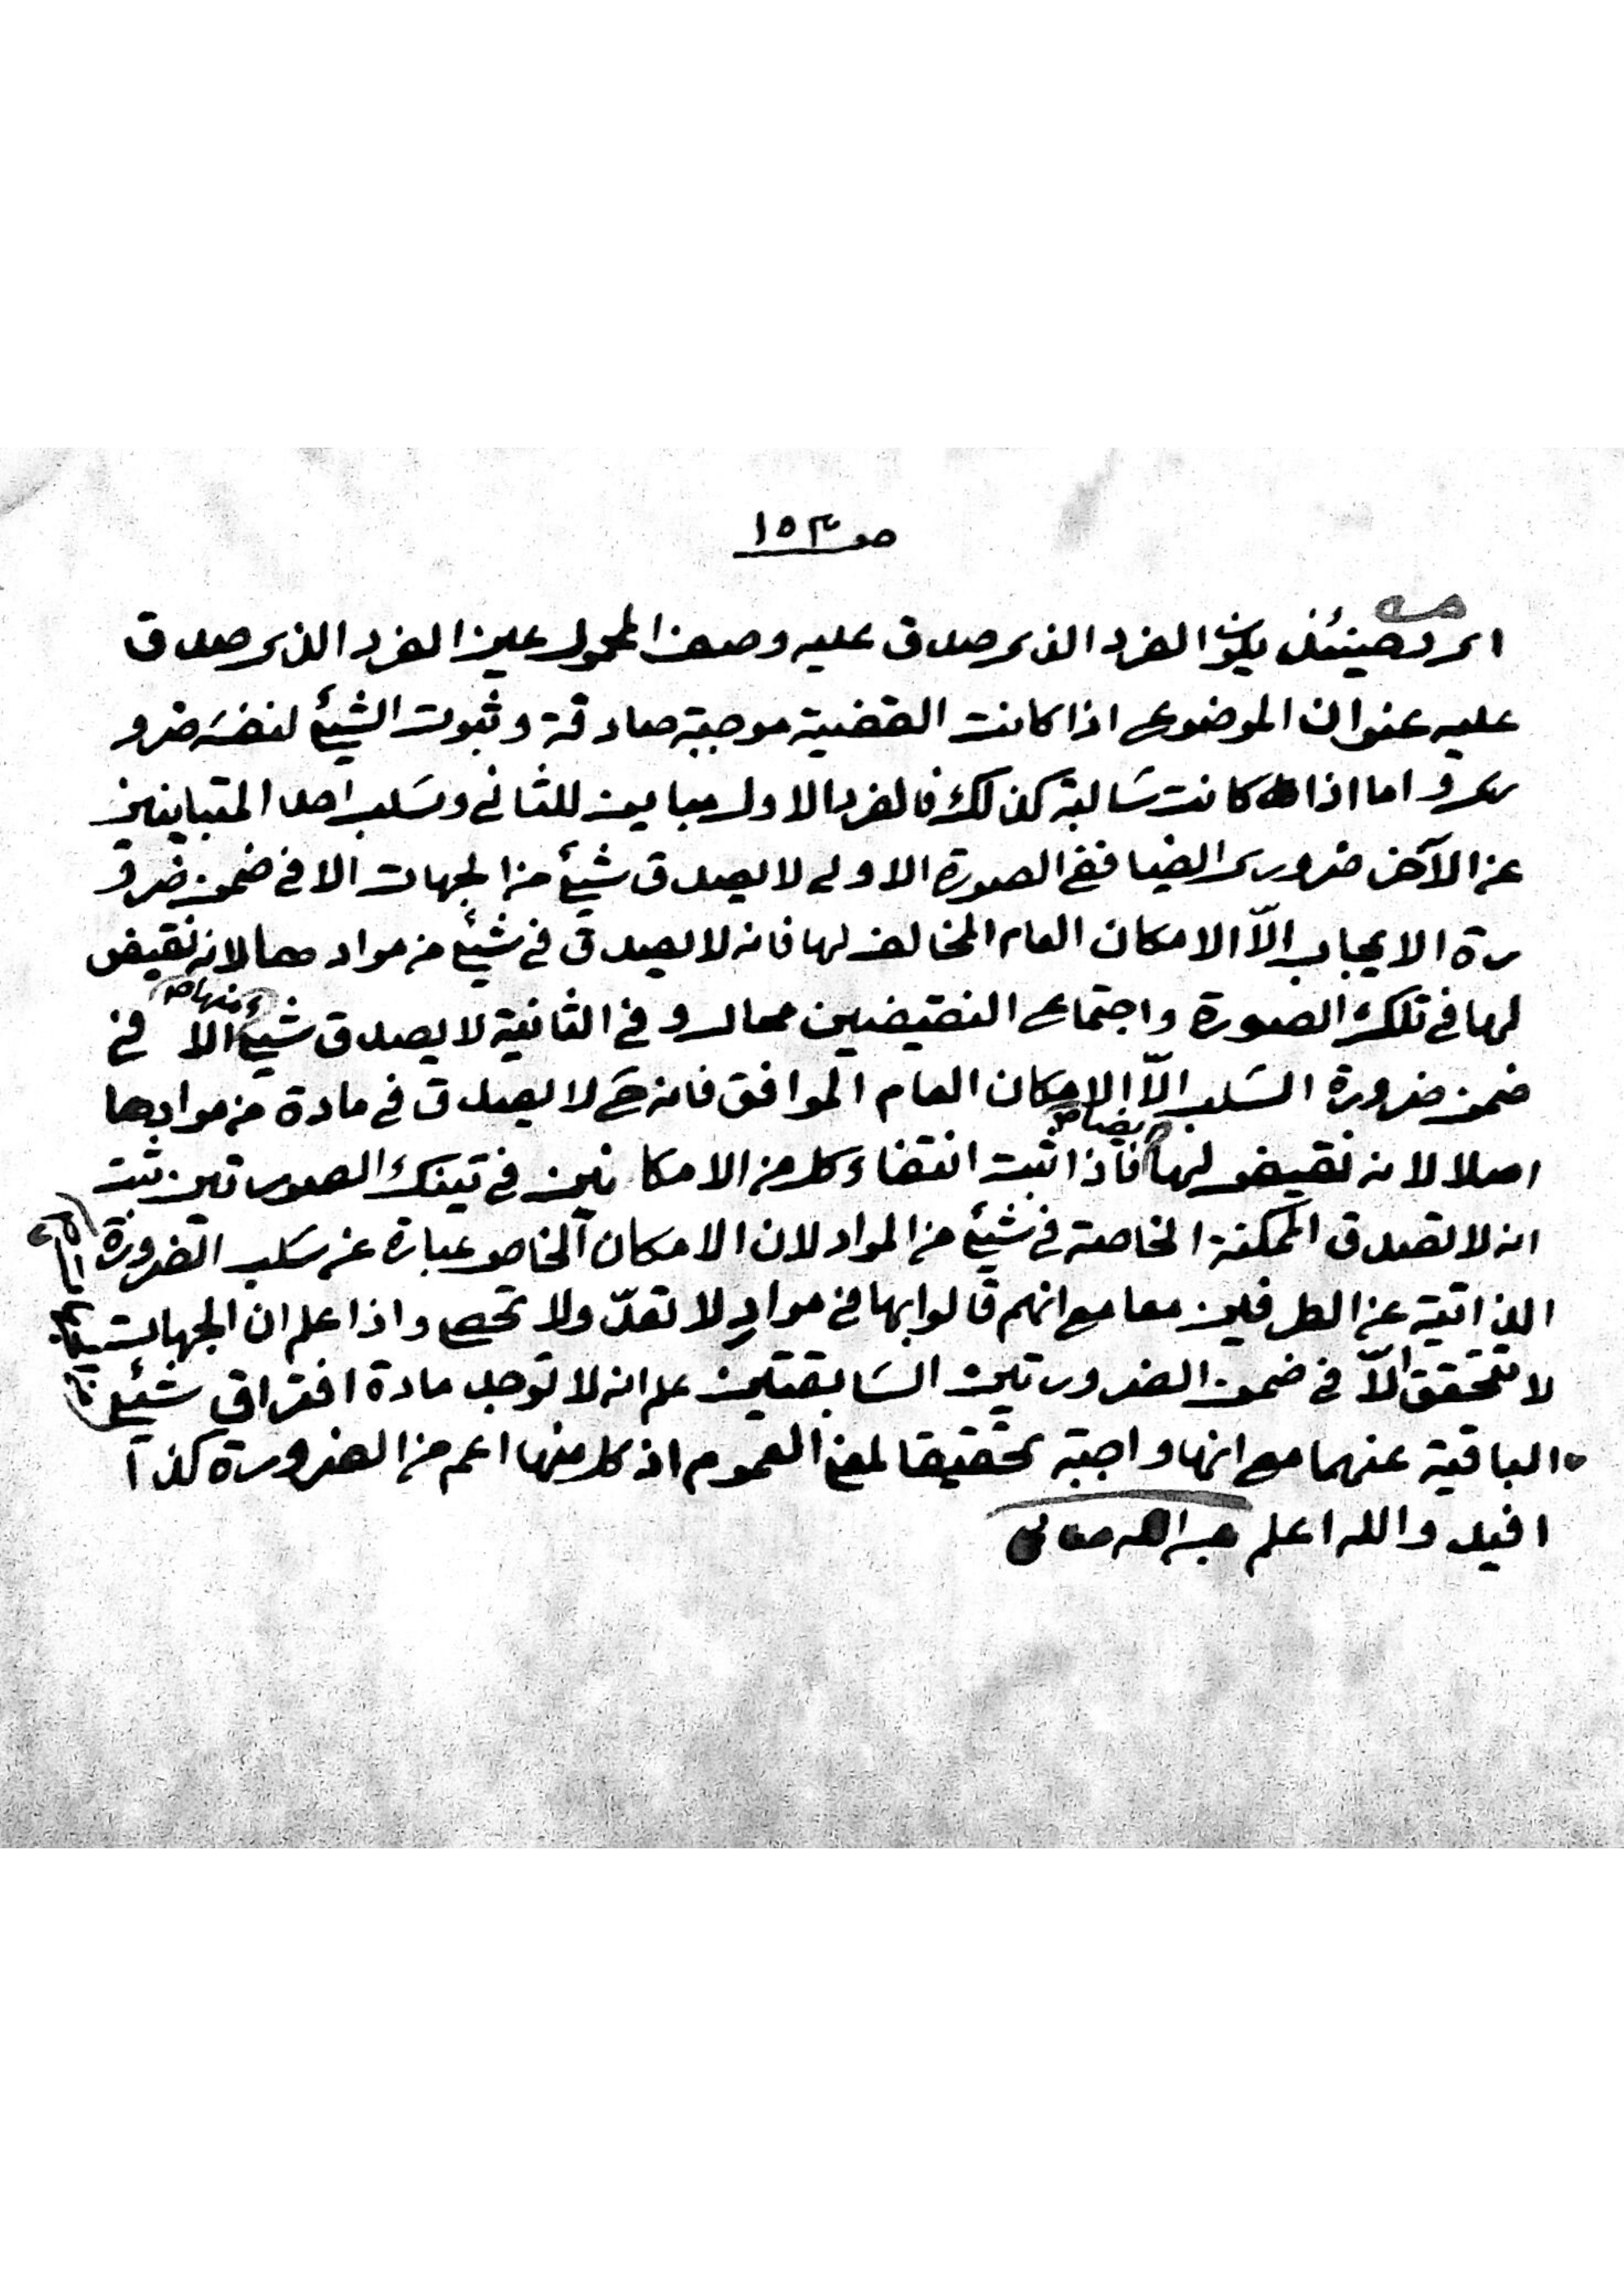 صـ ١٥٣
اى وحينئذ يكون الفرد الذى صدق عليه وصف المحمول عين الفرد الذى صدق
عليه عنوان الموضوع اذا كانت القضية موجبة صادقة وثبوت الشيئ لنفسه ضرو
رى واما اذا كانت سالبة كذلك فالفرد الاول مباين للثانى وسلب احد المتباينين
عن الآخر ضرورى ايضا ففى الصورة الاولى لا يصدق شيئ من الجهات الا فى ضمن ضرو
رة الايجاب الّا الامكان العام المخالف لها فانه لا يصدق فى شيئ من مواد ها لانه نقيض
لها فى تلك الصورة واجتماع النقيضين محال وفى الثانية لا يصدق شيئ منها الا فى
ضمن ضرورة السلب الّا الامكان العام الموافق فانه ح لا يصدق فى مادة من موادها
اصلا لانه نقيض لها ايضا فاذا ثبت انتفاء كل من الامكانين فى تينك الصورتين ثبت
انه لا تصدق الممكنة الخاصة فى شيئ من المواد لان الامكان الخاص عبارة عن سلب الضرورة
الذاتية عن الطرفين معا مع انهم قالوا بها فى مواد لا تعدّ ولا تحصى واذا علم ان الجهات
لا تتحقق الّا فى ضمن الضرورتين السابقتين علم انه لا توجد مادة افتراق شيئ
الباقية عنهما مع انها واجبة تحقيقا لمعنى العموم اذ كل منها اعم من الضرورة كذا
افيد والله اعلم